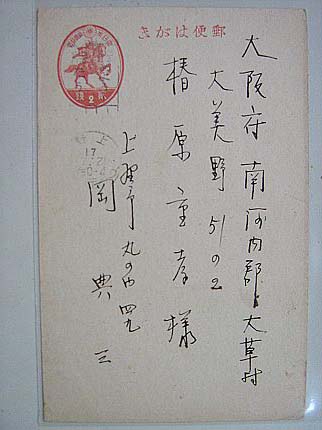 郵便はがき
大阪府南河内郡大草村
大美野51の2
椿原重孝様
上野市丸の内四九
岡典三
17